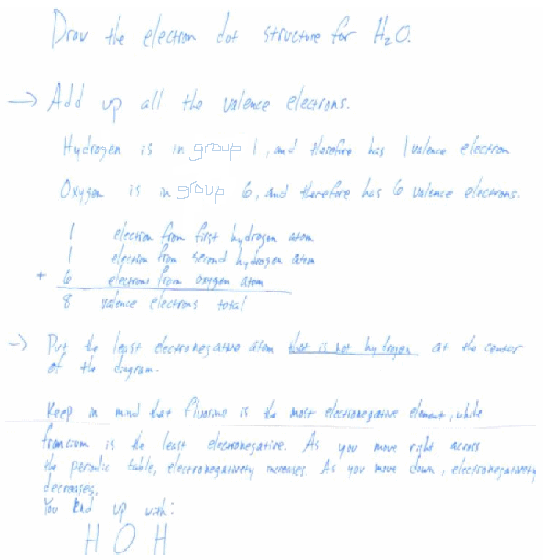 Draw the electron dot structure for H₂O.
→ Add up all the valence electrons.
Hydrogen is in group 1, and therefore has 1 valence electron
Oxygen is in group 6, and therefore has 6 valence electrons.
1 electron from first hydrogen atom
1 electron from second hydrogen atom
+ 6 electrons from oxygen atom
8 valence electrons total
→ Put the least electronegative atom that is not hydrogen at the center
of the diagram.
Keep in mind that fluorine is the most electronegative element, while
francium is the least electronegative. As you move right across
the periodic table, electronegativity increases. As you move down, electronegativity
decreases.
You end up with:
H O H